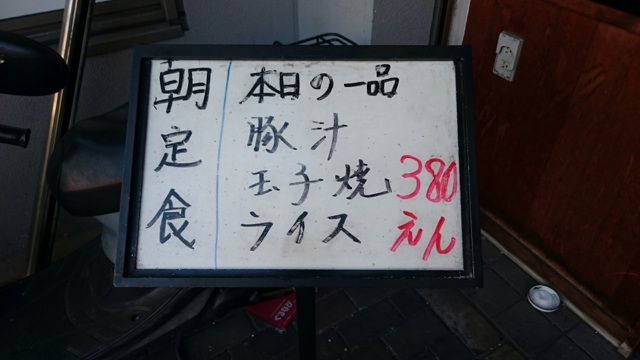 朝定食
本日の一品
豚汁
玉子焼
ライス
380
えん